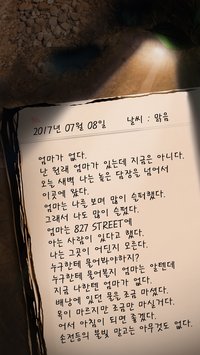 2017년 07월 08일 날씨 : 맑음
엄마가 없다.
난 원래 엄마가 있는데 지금은 아니다.
오늘 새벽 나는 높은 담장을 넘어서
이곳에 왔다.
엄마는 나를 보며 많이 슬퍼했다.
그래서 나도 많이 슬펐다.
엄마는 827 STREET에
아는 사람이 있다고 했다.
나는 그곳이 어딘지 모른다.
누구한테 물어봐야하지?
누구한테 물어볼지 엄마는 알텐데
지금 나한텐 엄마가 없다.
배낭에 있던 물을 조금 마셨다.
목이 마르지만 조금만 마실거다.
어서 아침이 되면 좋겠다.
손전등의 불빛 말고는 아무것도 없다.